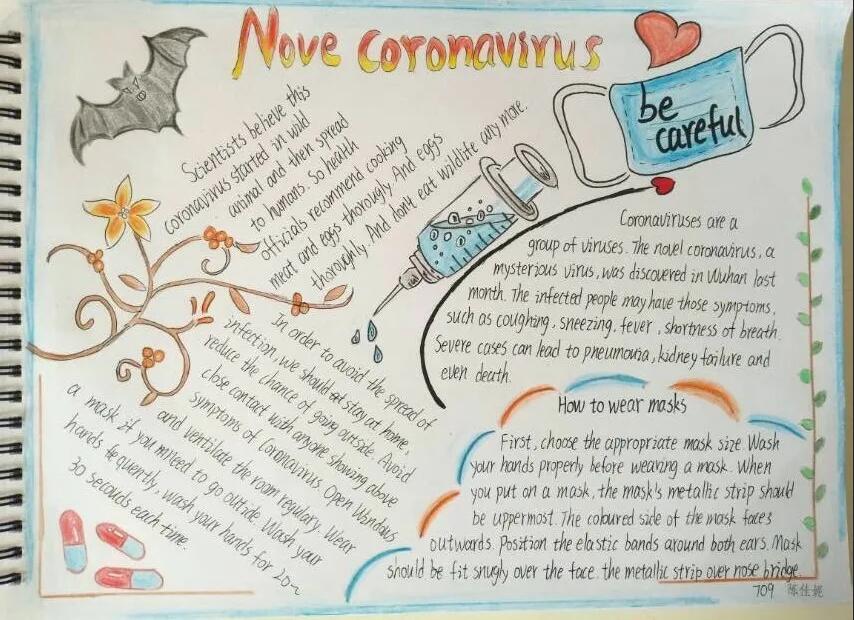 Nove coronavirus
Scientists believe this
coronavirus started in wild
animal and then spread
to humans. So health
officials recommend cooking
meat and eggs thorougly. And eggs
thorougly. And dont eat wildlife any more.
be
careful
Coronaviruses are a
group of viruses. The novel coronavirus, a
mysterious virus, was discovered in Wuhan last
month. The infected people may have those symptoms,
such as coughing, sneezing, fever, shortness of breath.
Severe cases can lead to pneumouia, kidney failure and
even death.
In order to avoid the spread of
infection, we should stay at home,
reduce the chance of going outside. Avoid
close contact with anyone showing above
symptoms of Coronavirus. Open Windows
and ventilate the room regulary. Wear
a mask if you mneed to go outide. Wash your
hands frequently, wash your hands for 20~
30 Seconds each time.
How to wear masks
First, choose the appropriate mask size. Wash
your hands properly before wearing a mask. When
you put on a mask, the mask's metallic strip should
be uppermost. The coloured side of the mask faces
outwards. Position the elastic bands around both ears. Mask
should be fit snugly over the face. the metallic strip over nose bridge.
709 陈佳妮